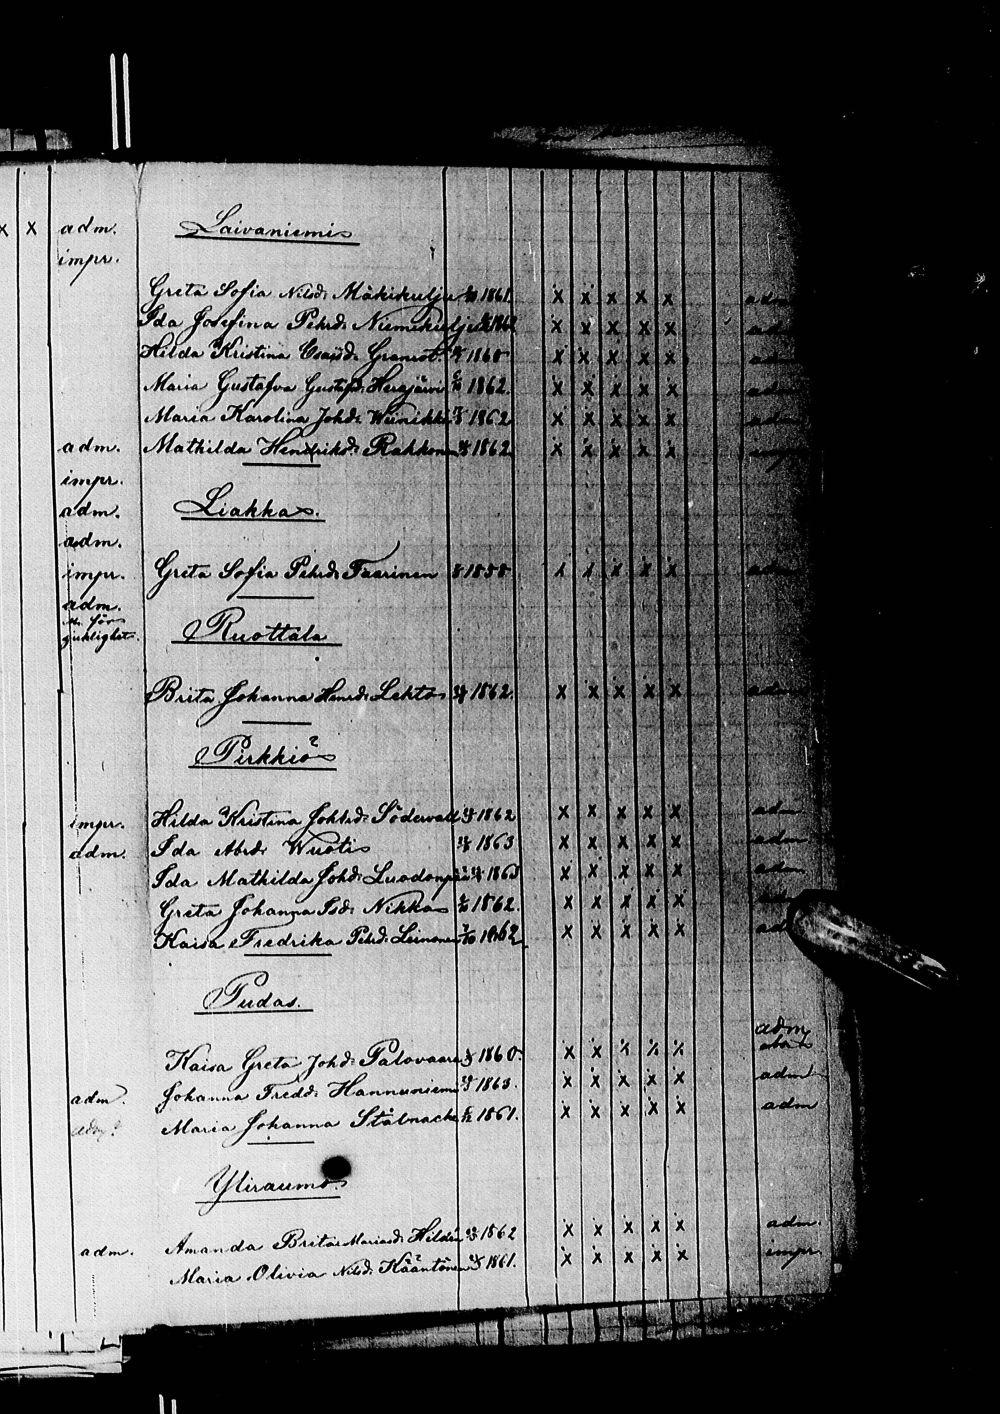 x x adm.
impr.
adm.
impr.
adm.
adm.
impr.
adm.
impr.
adm.
adm.
adm.
Laivaniemi
Greta Sofia Nilsd. Mäkikulju 1861 x x x x x adm
Ida Josefina Pehrd. Niemikulju x x x x x ad
Hilda Kristina Granrot 1860 x x x x x
Maria Gustafva Gustafd. Herajärvi 1862. x x x x x ad
Maria Karolina Johd. Wiinikka 1862 x x x x x adm
Mathilda Henriksd. Rahkonen 1862 x x x x x
Liakka.
Greta Sofia Pehrd. x x x x x adm
Ruottala
Brita Johanna Henrd. Lehto 1862. x x x x x adm
Pirkkiö
Hilda Kristina Johhd. Söderwall 1862 x x x x x adm
Ida Abrd. Wuoti 1863 x x x x x adm
Ida Mathilda Johd. 1863 x x x x x adm
Greta Johanna Isd. Nikka 1862. x x x x x
Kaisa Fredrika Pehrd. Leinonen 1862 x x x x x ad
Pudas.
adm
Kaisa Greta Johd. Palovaara 1860. x x x x x
Johanna Fredd. Hannuniemi 1863. x x x x x adm
Maria Johanna Stålnacke 1861. x x x x x adm
Yliraumo.
Amanda Brita Mariasd. Hildén 1862 x x x x x adm.
Maria Olivia Nilsd. Kääntönen 1861. x x x x x impr.